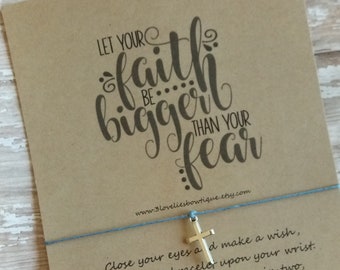 LET YOUR
faith
BE
bigger
THAN YOUR
fear
www.3loveliesbowtique.etsy.com
Close your eyes and make a wish,
bracelet upon your wrist.
in two,